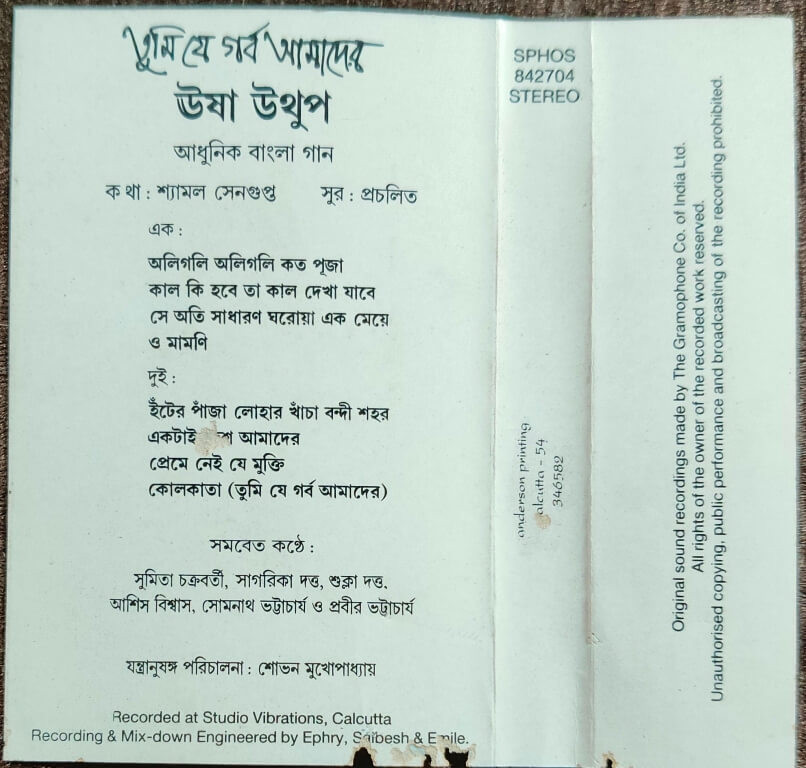 তুমি যে গর্ব আমাদের
ঊষা উত্থুপ
আধুনিক বাংলা গান
কথা : শ্যামল সেনগুপ্ত সুর : প্রচলিত
এক :
অলিগলি অলিগলি কত পূজা
কাল কি হবে তা কাল দেখা যাবে
সে অতি সাধারণ ঘরোয়া এক মেয়ে
ও মামণি
দুই :
ইঁটের পাঁজা লোহার খাঁচা বন্দী শহর
একটাই আমাদের
প্রেমে নেই যে মুক্তি
কোলকাতা (তুমি যে গর্ব আমাদের)
সমবেত কণ্ঠে :
সুমিতা চক্রবর্তী, সাগরিকা দত্ত, শুক্লা দত্ত,
আশিস বিশ্বাস, সোমনাথ ভট্টাচার্য ও প্রবীর ভট্টাচার্য
যন্ত্রানুষঙ্গ পরিচালনা : শোভন মুখোপাধ্যায়
Recorded at Studio Vibrations, Calcutta
Recording & Mix-down Engineered by Ephry, &
SPHOS
842704
STEREO
anderson printing
alcutta - 54
346582
Original sound recordings made by The Gramophone Co. of India Ltd.
All rights of the owner of the recorded work reserved.
Unauthorised copying, public performance and broadcasting of the recording prohibited.